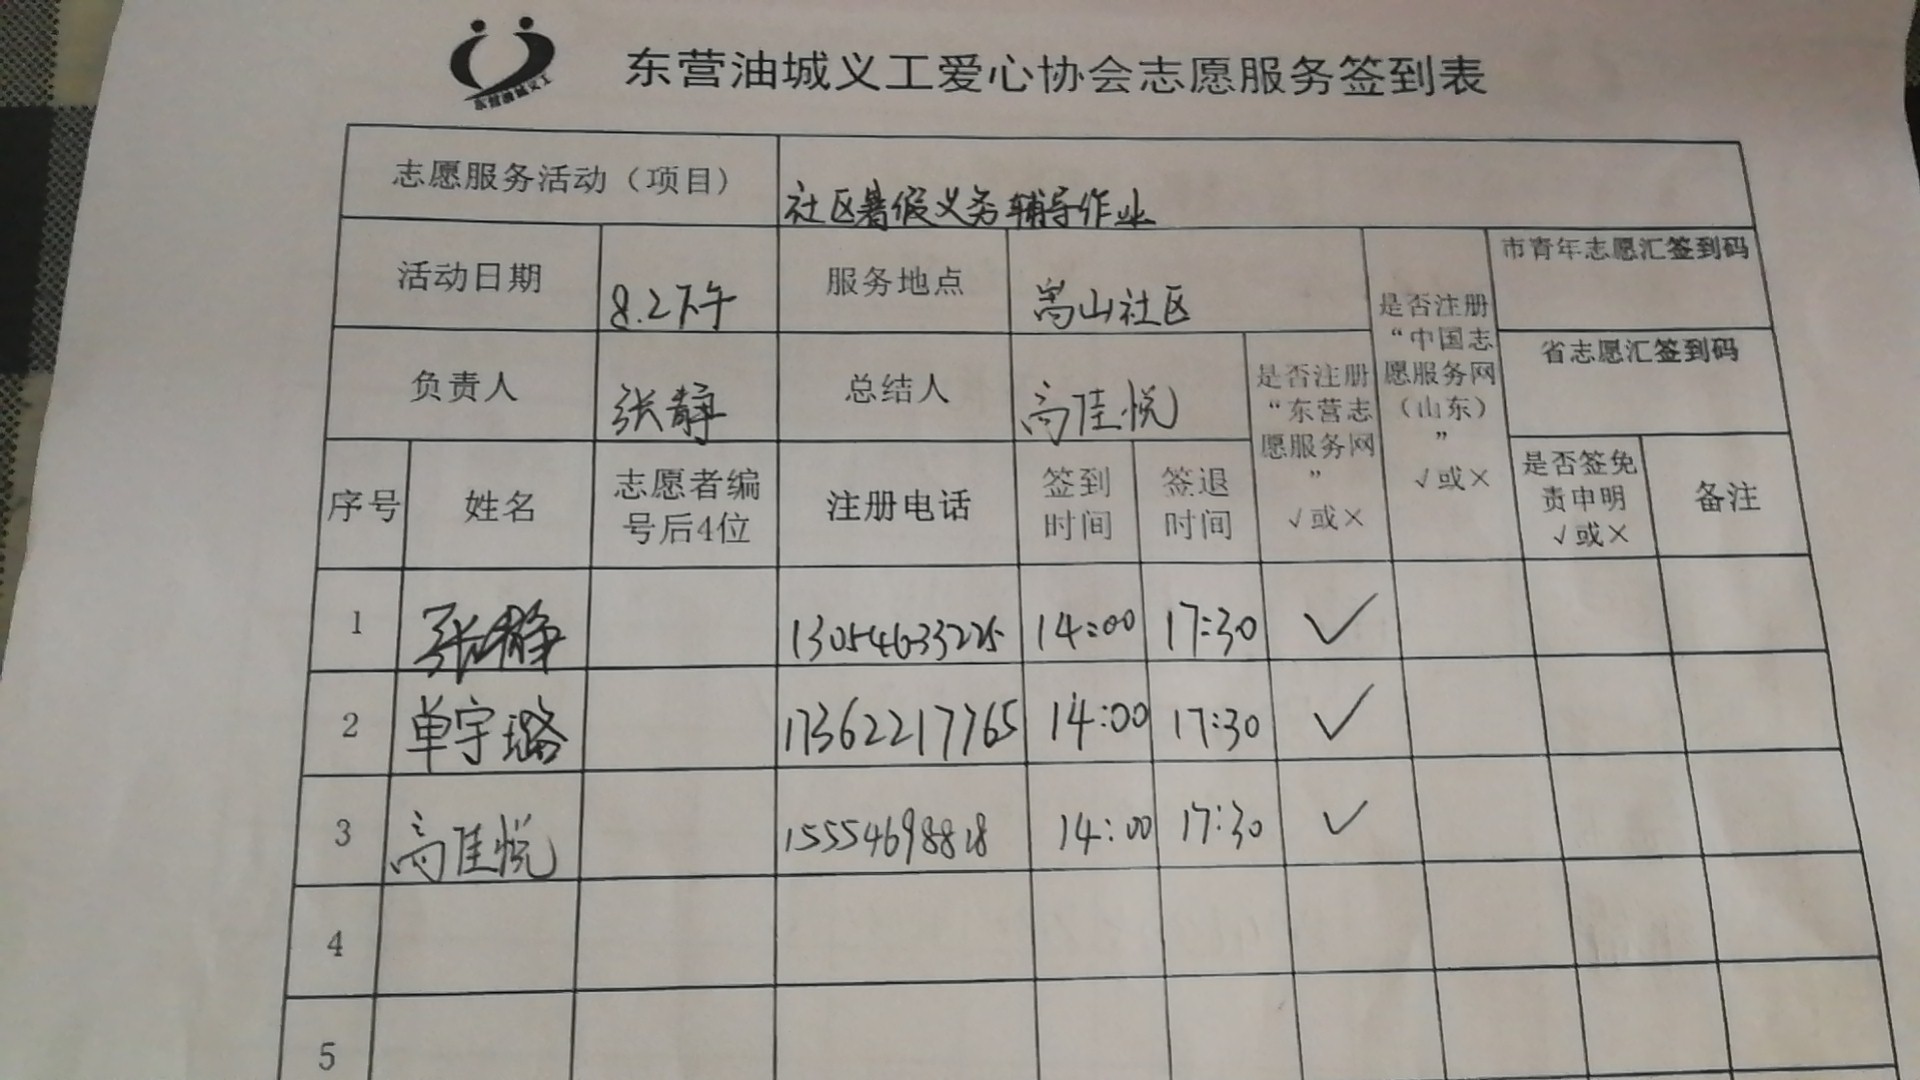 东营油城义工
东营油城义工爱心协会志愿服务签到表
志愿服务活动（项目） 社区暑假义务辅导作业
活动日期 8.2下午 服务地点 嵩山社区
是否注册“中国志愿服务网（山东）” √或×
市青年志愿汇签到码
省志愿汇签到码
负责人 张静 总结人 高佳悦
是否注册“东营志愿服务网” √或×
序号 姓名 志愿者编号后4位 注册电话 签到时间 签退时间 是否签免责申明 √或× 备注
1 张静 13054633225 14:00 17:30 ✓
2 单宇璐 17362217765 14:00 17:30 ✓
3 高佳悦 15554698818 14:00 17:30 ✓
4
5